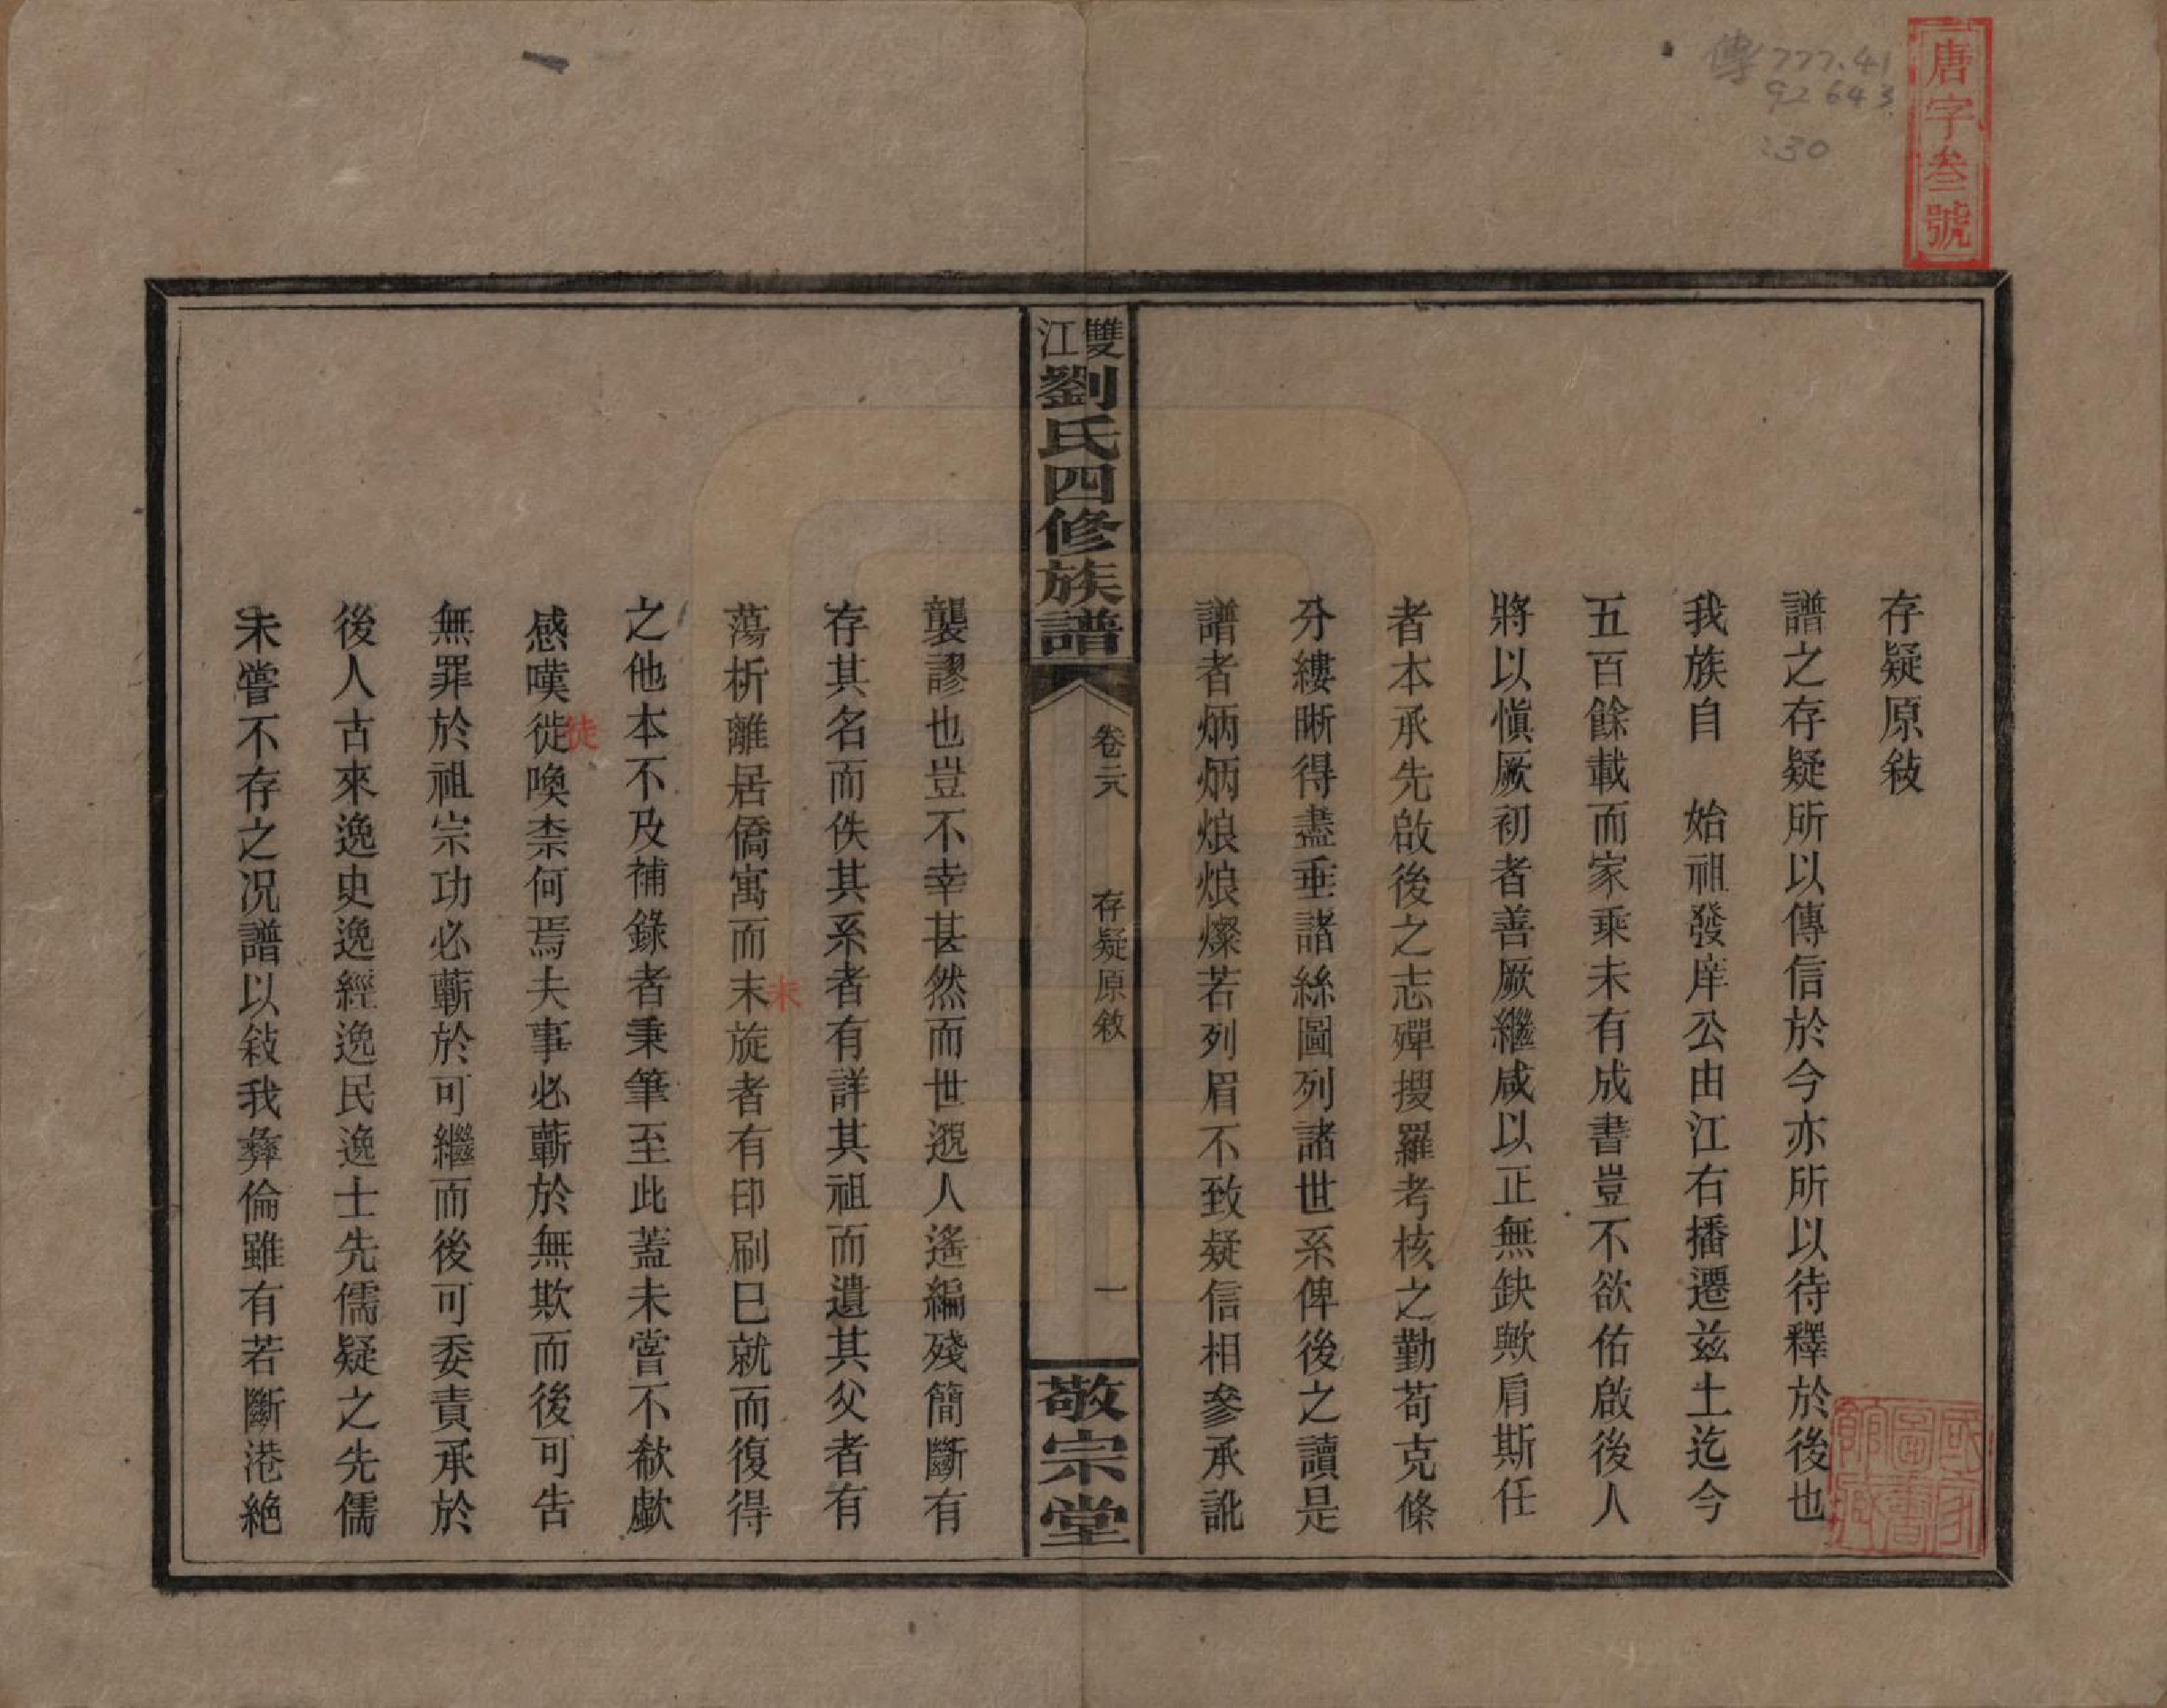 唐字叁號
傳777.41
92643
:30
存疑原敍
譜之存疑所以傳信於今亦所以待釋於後也
我族自　始祖發庠公由江右播遷兹土迄今
五百餘載而家乘未有成書豈不欲佑啟後人
將以愼厥初者善厥繼咸以正無缺歟肩斯任
者本承先啟後之志殫搜羅考核之勤苟克條
分縷晰得盡垂諸絲圖列諸世系俾後之讀是
譜者炳炳烺烺燦若列眉不致疑信相參承訛
雙江劉氏四修族譜
卷二六
存疑原敘
一
敬宗堂
襲謬也豈不幸甚然而世邈人遙編殘簡斷有
存其名而佚其系者有詳其祖而遺其父者有
蕩析離居僑寓而末旋者有印刷巳就而復得
未
之他本不及補錄者秉筆至此蓋未嘗不欷歔
感嘆徙喚柰何焉夫事必蘄於無欺而後可告
徒
無罪於祖宗功必蘄於可繼而後可委責承於
後人古來逸史逸經逸民逸士先儒疑之先儒
未嘗不存之况譜以敍我彝倫雖有若斷港絶
國家圖書館藏